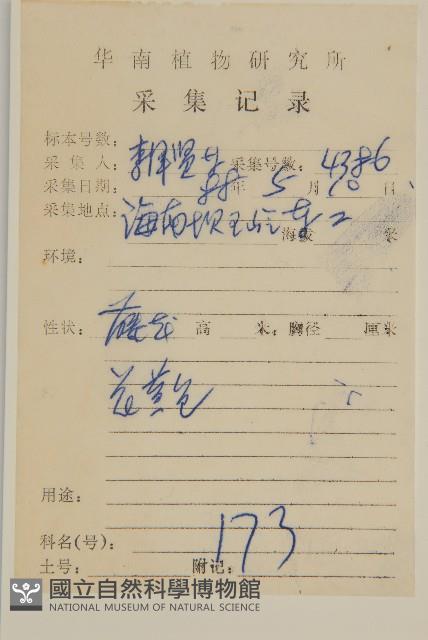 华南植物研究所
采集记录
标本号数：
采集人： 采集号数：4386
采集日期： 年 5 月 10 日
采集地点：海南坝王岭 海拔 米
环境：
性状：藤本 高 米，胸径 厘米
花黄色
用途：
科名(号)：
173
土号： 附记：
國立自然科學博物館
NATIONAL MUSEUM OF NATURAL SCIENCE